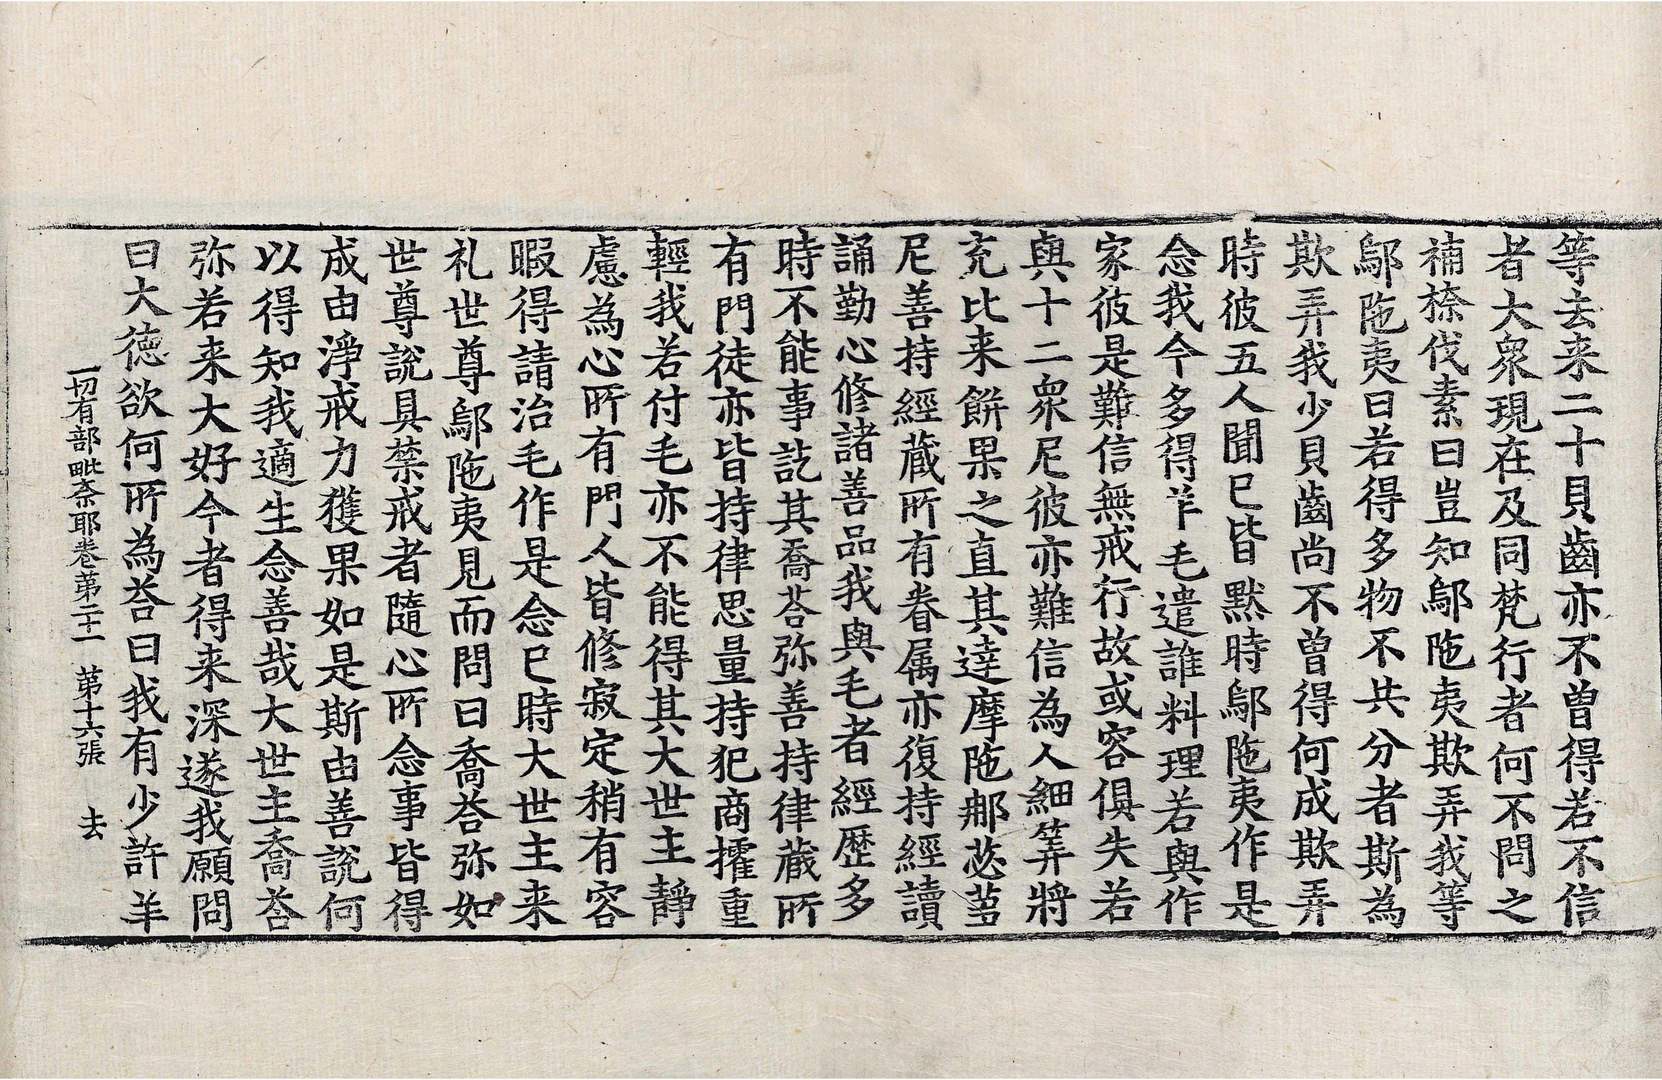 等去来二十貝齒亦不曾得若不信
者大衆現在及同梵行者何不問之
補捺伐素曰豈知鄔陁夷欺弄我等
鄔陁夷曰若得多物不共分者斯為
欺弄我少貝齒尚不曾得何成欺弄
時彼五人聞已皆默時鄔陁夷作是
念我今多得羊毛遣誰料理若與作
家彼是難信無戒行故或容俱失若
與十二衆尼彼亦難信為人細筭將
充比来餅果之直其達摩陁那苾蒭
尼善持經蔵所有眷属亦復持經讀
誦勤心修諸善品我與毛者經歷多
時不能事訖其喬荅弥善持律蔵所
有門徒亦皆持律思量持犯商搉重
輕我若付毛亦不能得其大世主靜
慮為心所有門人皆修寂定稍有容
暇得請治毛作是念已時大世主来
礼世尊鄔陁夷見而問曰喬荅弥如
世尊說具禁戒者隨心所念事皆得
成由淨戒力獲果如是斯由善說何
以得知我適生念善哉大世主喬荅
弥若来大好今者得来深遂我願問
曰大徳欲何所為荅曰我有少許羊
一切有部毗奈耶卷第二十一　第十六張　去